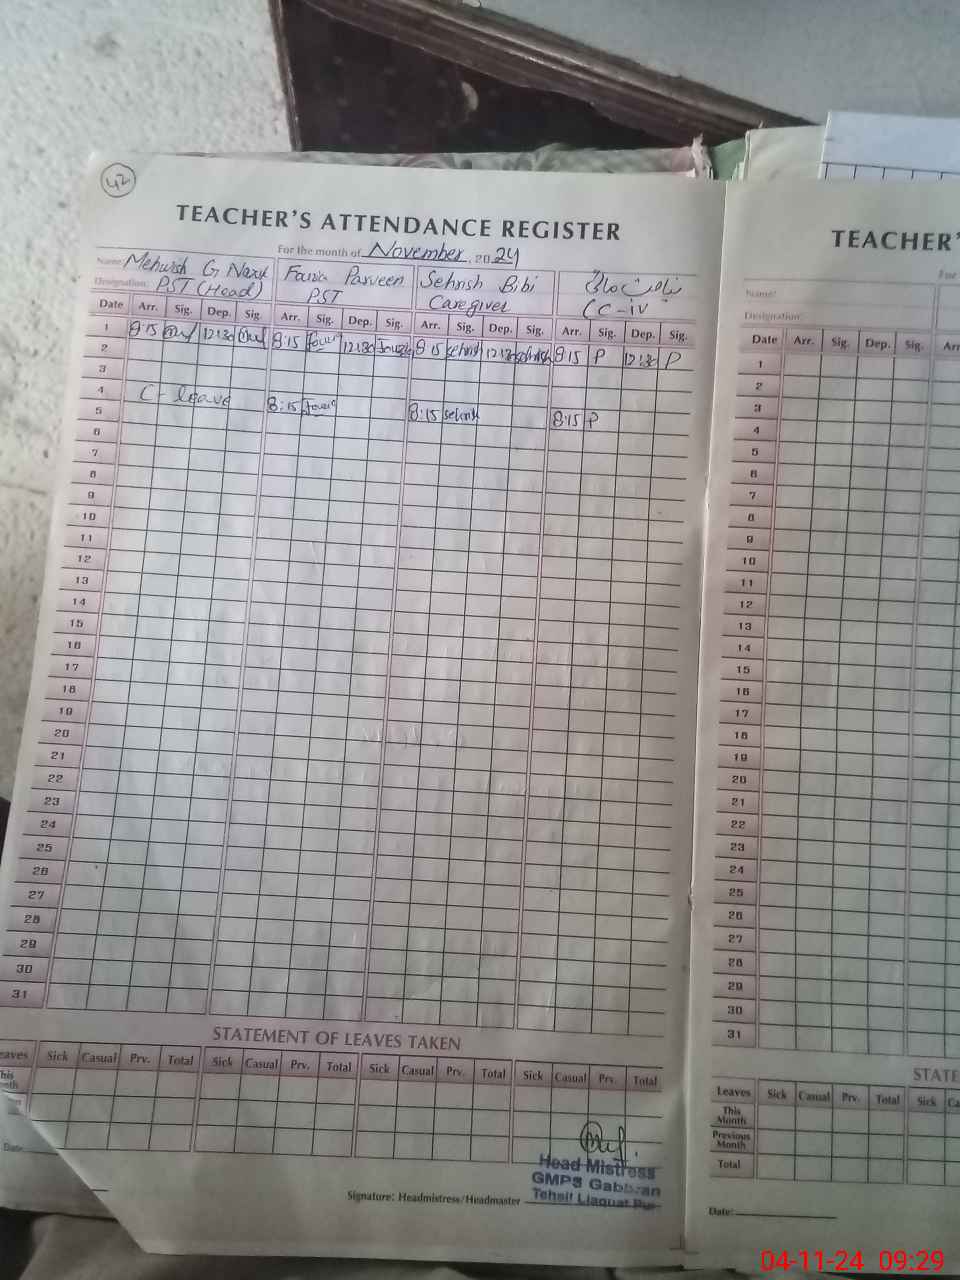 42
TEACHER'S ATTENDANCE REGISTER
For the month of November, 2024
Name: Mehwish G Nazık Fouzia Parveen Sehrish Bibi
Designation: PST (Head) PST Caregiver CC-iv
Date Arr. Sig. Dep. Sig. Arr. Sig. Dep. Sig. Arr. Sig. Dep. Sig. Arr. Sig. Dep. Sig.
1 8:15 12:30 8:15 12:30 8:15 sehrish 12:30 sehrish 8:15 P 12:30 P
2
3
4 C-leave 8:15 8:15 sehrish 8:15 P
5
6
7
8
9
10
11
12
13
14
15
16
17
18
19
20
21
22
23
24
25
26
27
28
29
30
31
STATEMENT OF LEAVES TAKEN
Leaves Sick Casual Prv. Total Sick Casual Prv. Total Sick Casual Prv. Total Sick Casual Prv. Total
Head Mistress
GMPS Gabbran
Tehsil Liaquat Pur
Signature: Headmistress/Headmaster
Date:
TEACHER'
For
Name:
Designation:
Date Arr. Sig. Dep. Sig. Arr
1
2
3
4
5
6
7
8
9
10
11
12
13
14
15
16
17
18
19
20
21
22
23
24
25
26
27
28
29
30
31
STATE
Leaves Sick Casual Prv. Total Sick Ca
This Month
Previous Month
Total
Date:
04-11-24 09:29